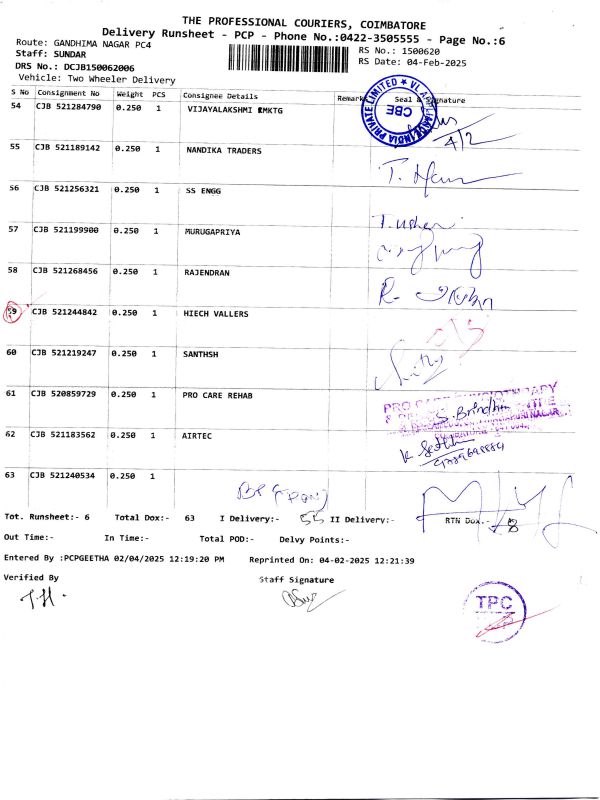 THE PROFESSIONAL COURIERS, COIMBATORE
Delivery Runsheet - PCP - Phone No.:0422-3505555 - Page No.:6
Route: GANDHIMA NAGAR PC4
RS No.: 1500620
Staff: SUNDAR
RS Date: 04-Feb-2025
DRS No.: DCJB150062006
Vehicle: Two Wheeler Delivery
S No Consignment No Weight PCS Consignee Details Remark Seal & Signature
54 CJB 521284790 0.250 1 VIJAYALAKSHMI EMKTG
CBE
4/2
55 CJB 521189142 0.250 1 NANDIKA TRADERS
56 CJB 521256321 0.250 1 SS ENGG
57 CJB 521199900 0.250 1 MURUGAPRIYA
58 CJB 521268456 0.250 1 RAJENDRAN
59 CJB 521244842 0.250 1 HIECH VALLERS
60 CJB 521219247 0.250 1 SANTHSH
61 CJB 520859729 0.250 1 PRO CARE REHAB
S. Brindha
62 CJB 521183562 0.250 1 AIRTEC
63 CJB 521240534 0.250 1
Tot. Runsheet:- 6 Total Dox:- 63 I Delivery:- 55 II Delivery:- RTN Dox.- 8
Out Time:- In Time:- Total POD:- Delvy Points:-
Entered By :PCPGEETHA 02/04/2025 12:19:20 PM Reprinted On: 04-02-2025 12:21:39
Verified By Staff Signature
T.H.
TPC